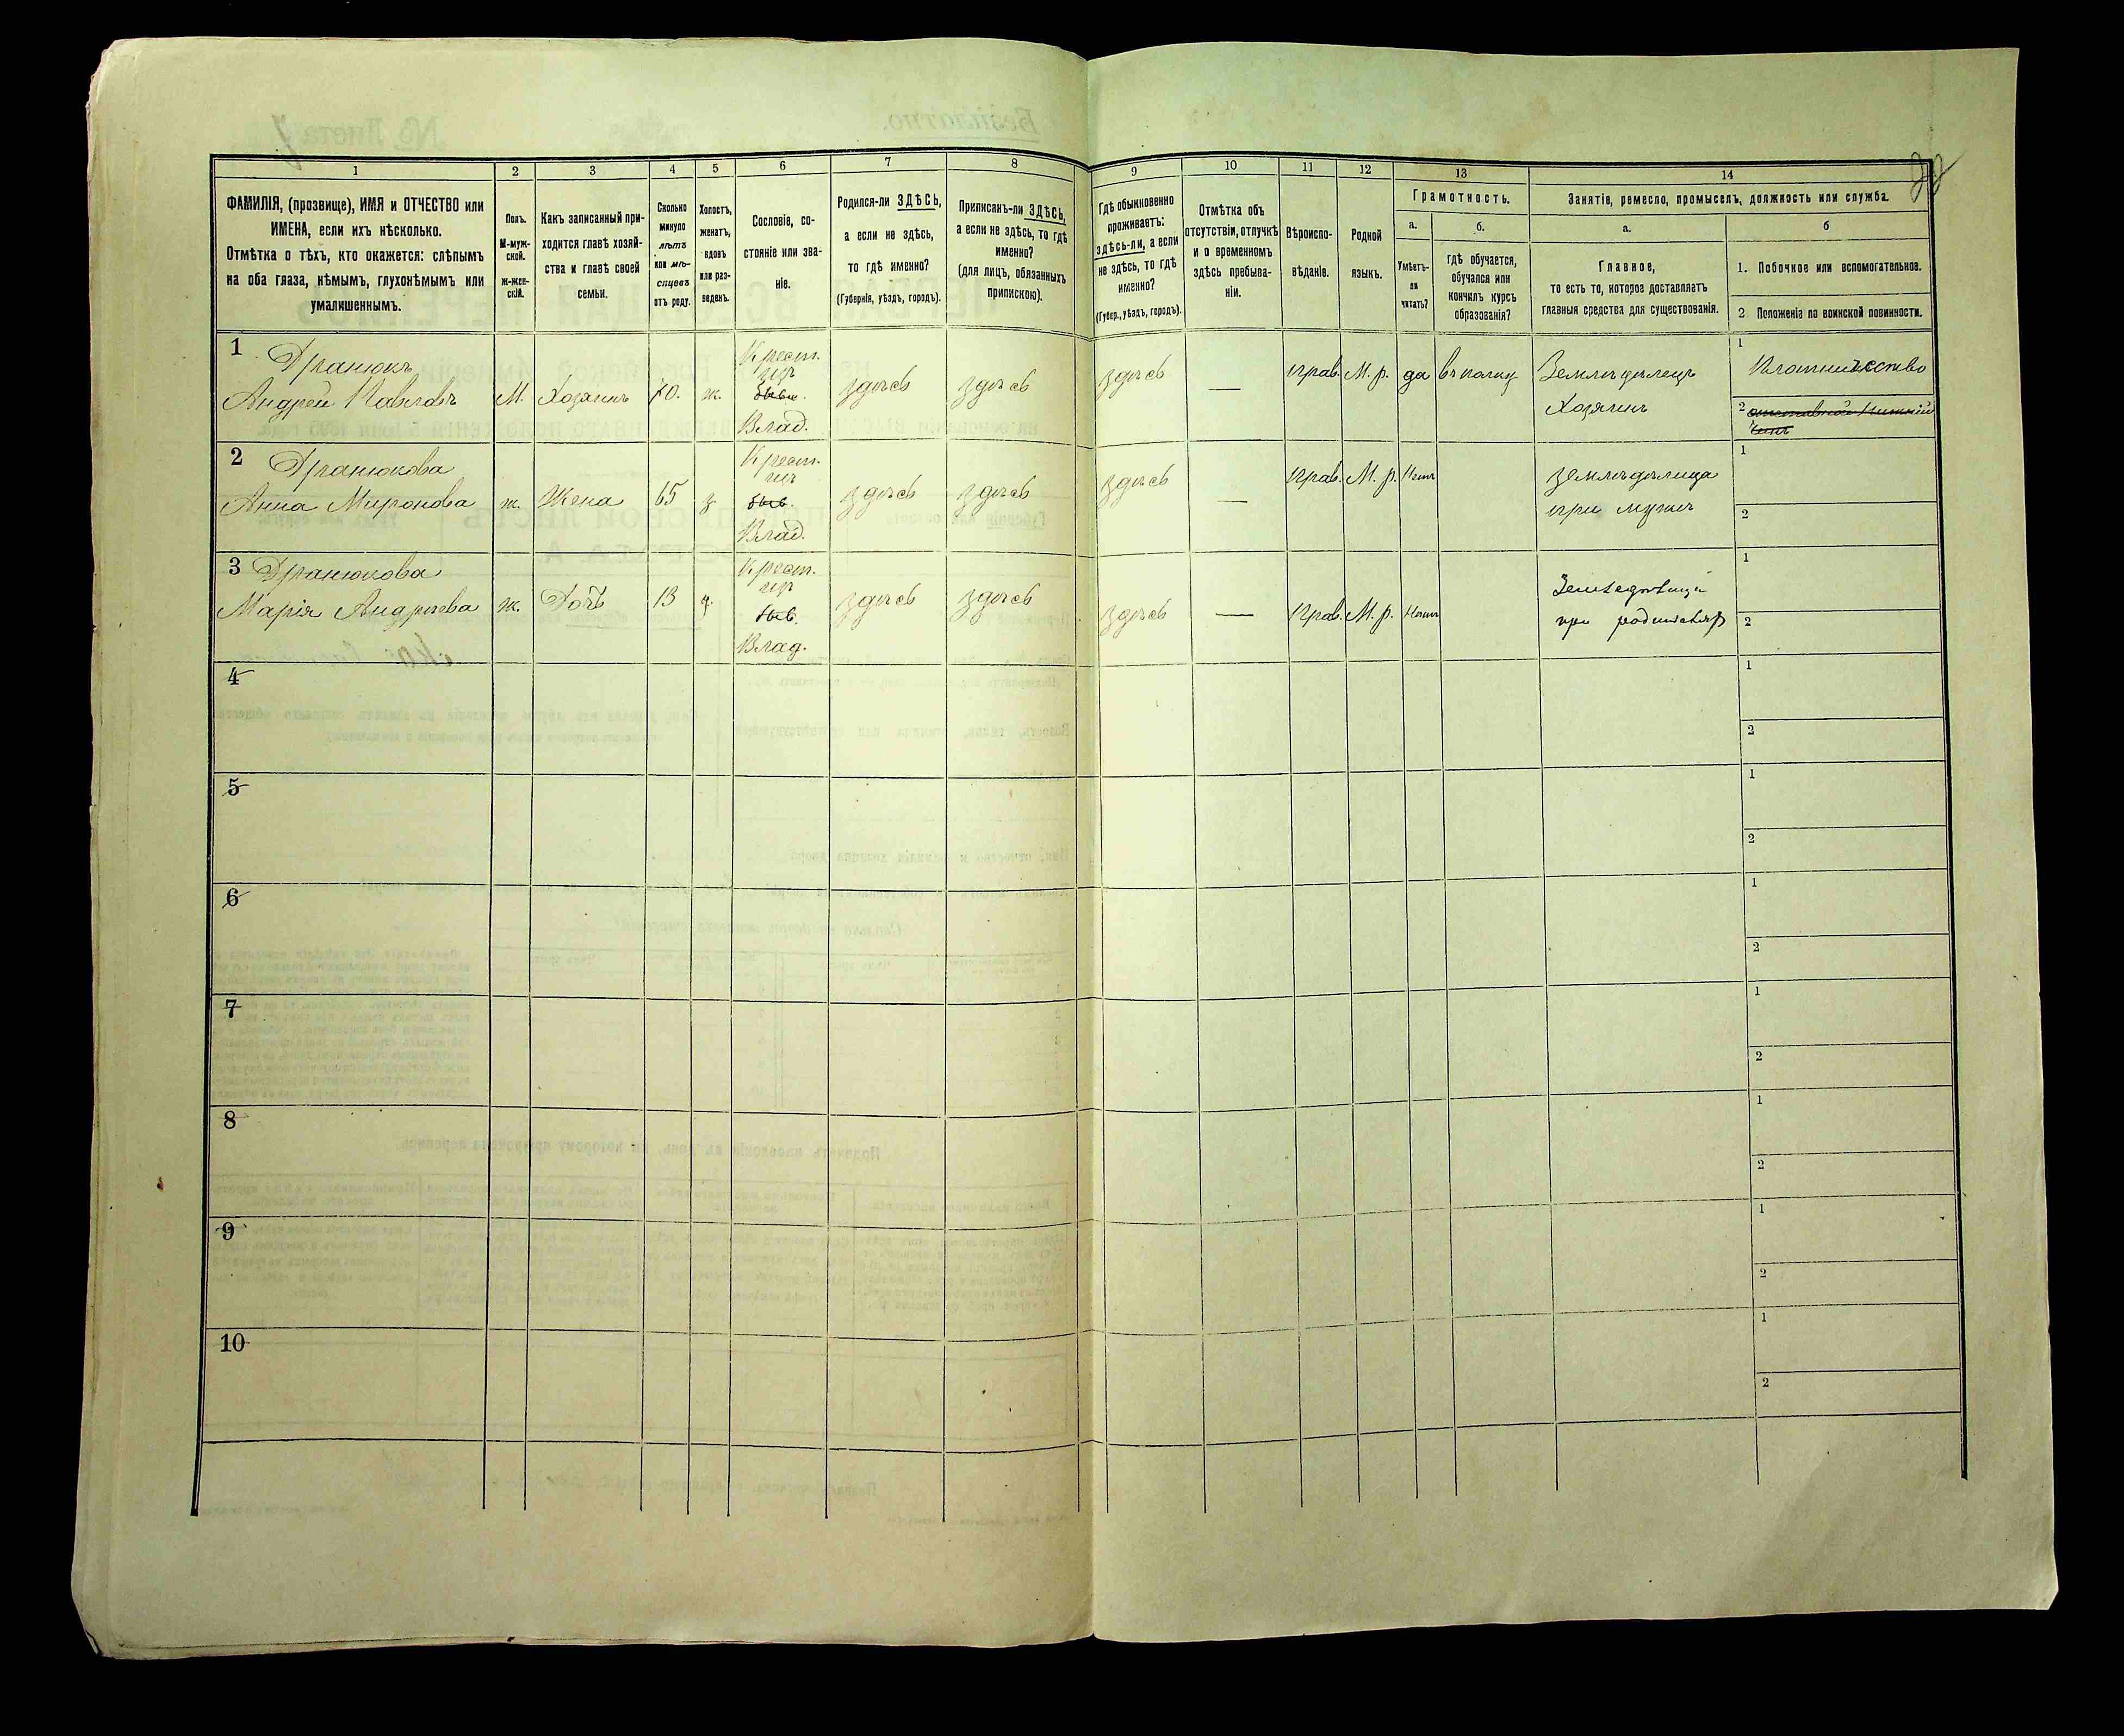 1 2 3 4 5 6 7 8 9 10 11 12 13 14
ФАМИЛІЯ, (прозвище), ИМЯ и ОТЧЕСТВО или
ИМЕНА, если ихъ нѣсколько.
Отмѣтка о тѣхъ, кто окажется: слѣпымъ
на оба глаза, нѣмымъ, глухонѣмымъ или
умалишеннымъ.
Полъ.
М-муж-
ской.
ж-жен-
скій.
Какъ записанный при-
ходится главѣ хозяй-
ства и главѣ своей
семьи.
Сколько
минуло
лѣтъ
или мѣ-
сяцевъ
отъ роду.
Холостъ,
женатъ,
вдовъ
или раз-
веденъ.
Сословіе, со-
стояніе или зва-
ніе.
Родился-ли ЗДѢСЬ,
а если не здѣсь,
то гдѣ именно?
(Губернія, уѣздъ, городъ).
Приписанъ-ли ЗДѢСЬ,
а если не здѣсь, то гдѣ
именно?
(для лицъ, обязанныхъ
припискою).
Гдѣ обыкновенно
проживаетъ:
здѣсь-ли, а если
не здѣсь, то гдѣ
именно?
(Губер., уѣздъ, городъ).
Отмѣтка объ
отсутствіи, отлучкѣ
и о временномъ
здѣсь пребыва-
ніи.
Вѣроиспо-
вѣданіе.
Родной
языкъ.
Грамотность.
а.
Умѣетъ-
ли
читать?
б.
гдѣ обучается,
обучался или
кончилъ курсъ
образованія?
Занятіе, ремесло, промыселъ, должность или служба.
а.
Главное,
то есть то, которое доставляетъ
главныя средства для существованія.
б
1. Побочное или вспомогательное.
2 Положеніе по воинской повинности.
1 Дранюкъ
Андрей Павловъ
М.
Хозяинъ
70.
ж.
Крест.
изъ
бывш.
Влад.
здѣсь
здѣсь
здѣсь
—
Прав.
М. р.
да
въ полку
Земледѣлецъ
Хозяинъ
1 Плотничество
2 отставной Нижній
Чинъ
2 Дранюкова
Анна Миронова
ж.
Жена
65
з
Крест.
изъ
быв.
Влад.
здѣсь
здѣсь
здѣсь
—
Прав.
М. р.
Нетъ
земледѣлица
при мужѣ
1
2
3 Дранюкова
Марія Андреева
ж.
Дочь
13
д.
Крест.
изъ
быв.
Влад.
здѣсь
здѣсь
здѣсь
—
Прав.
М. р.
Нетъ
при родителяхъ
1
2
4
1
2
5
1
2
6
1
2
7
1
2
8
1
2
9
1
2
10
1
2